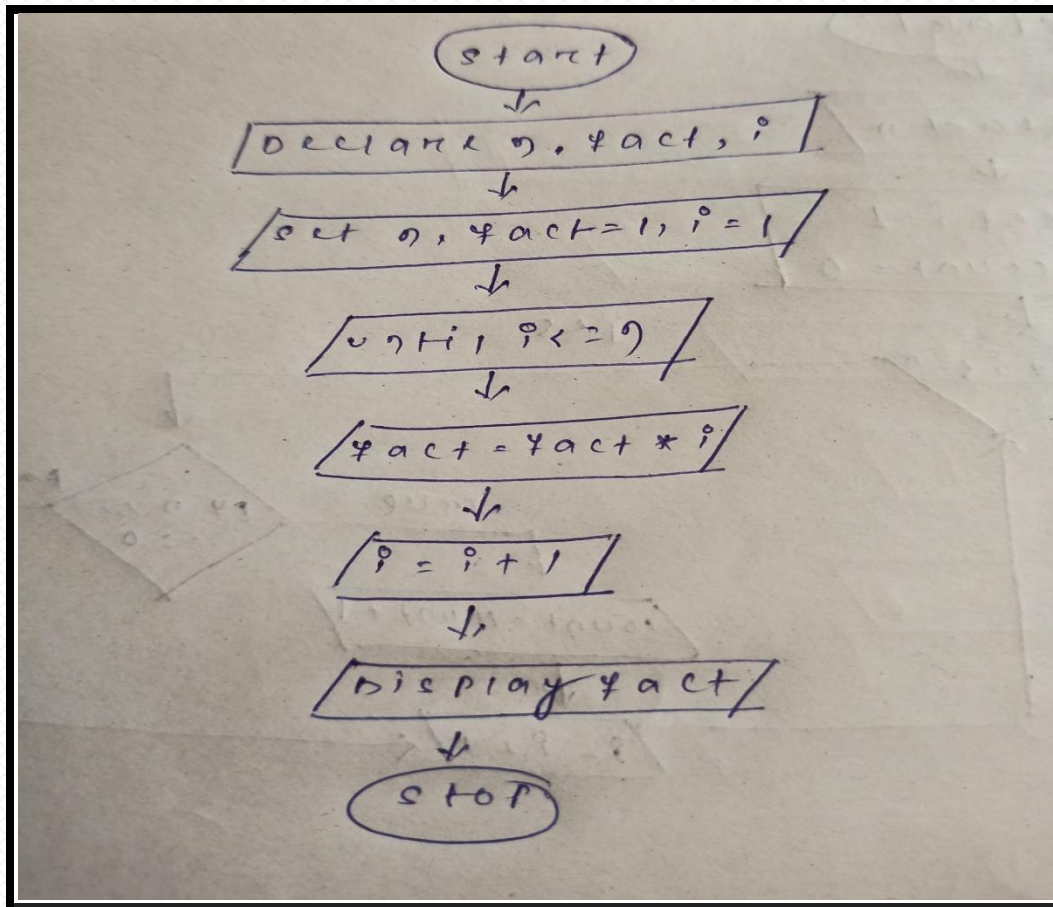 start
Declare n, fact, i
set n, fact=1, i=1
until i<=n
fact = fact * i
i = i + 1
Display fact
stop